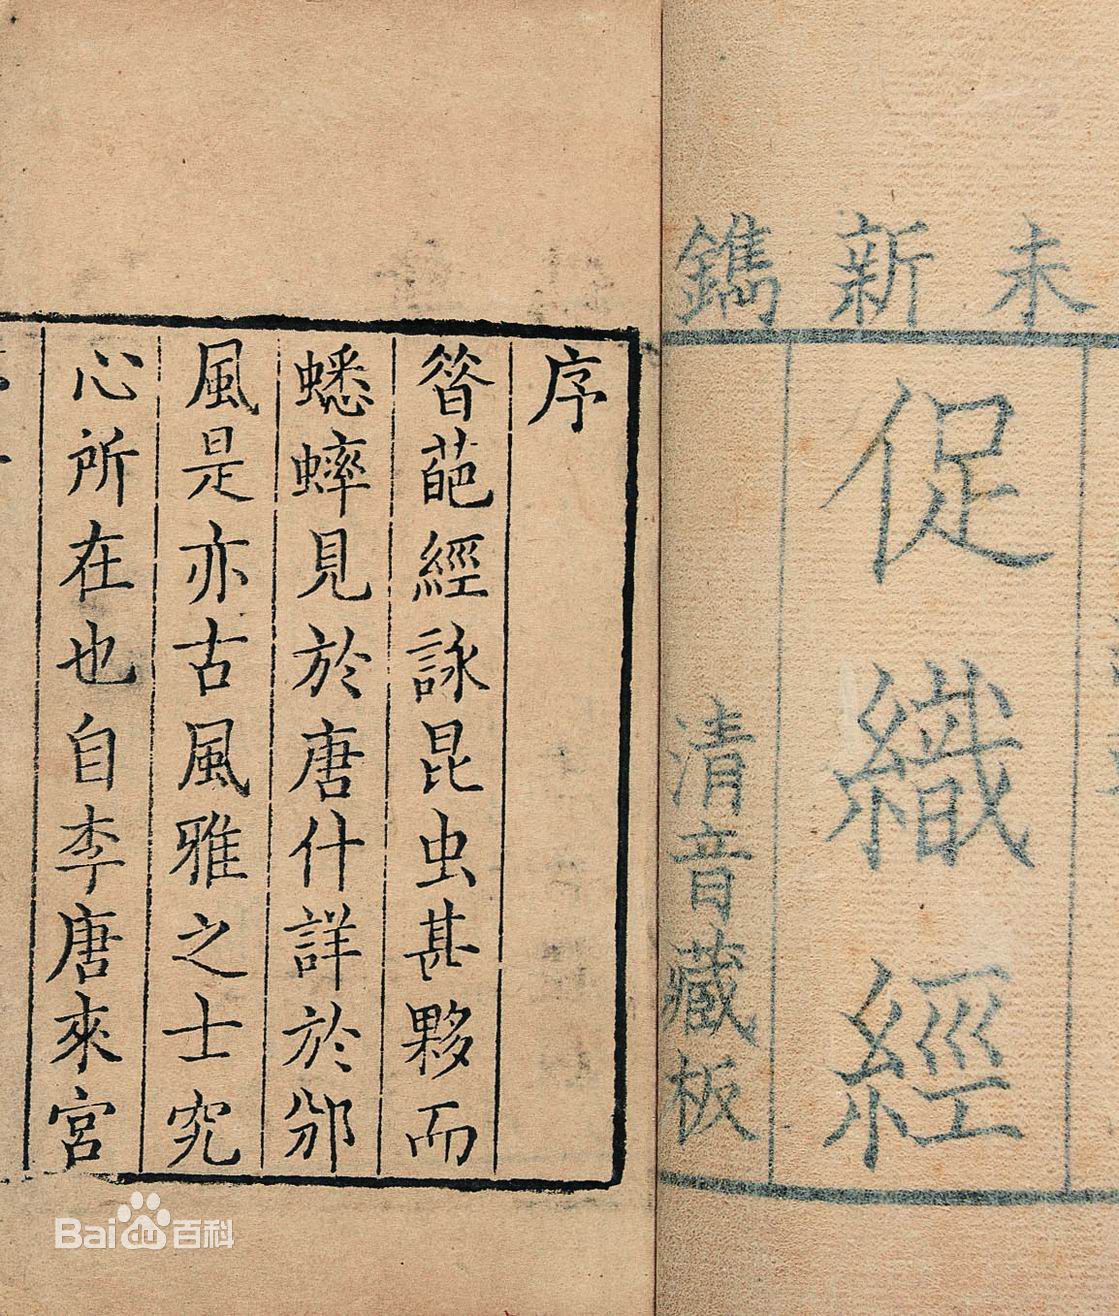 未新鐫
促織經
清音藏板
序
葩經詠昆虫甚夥而
蟋蟀見於唐什詳於邠
風是亦古風雅之士究
心所在也自李唐來宮
Baidu百科